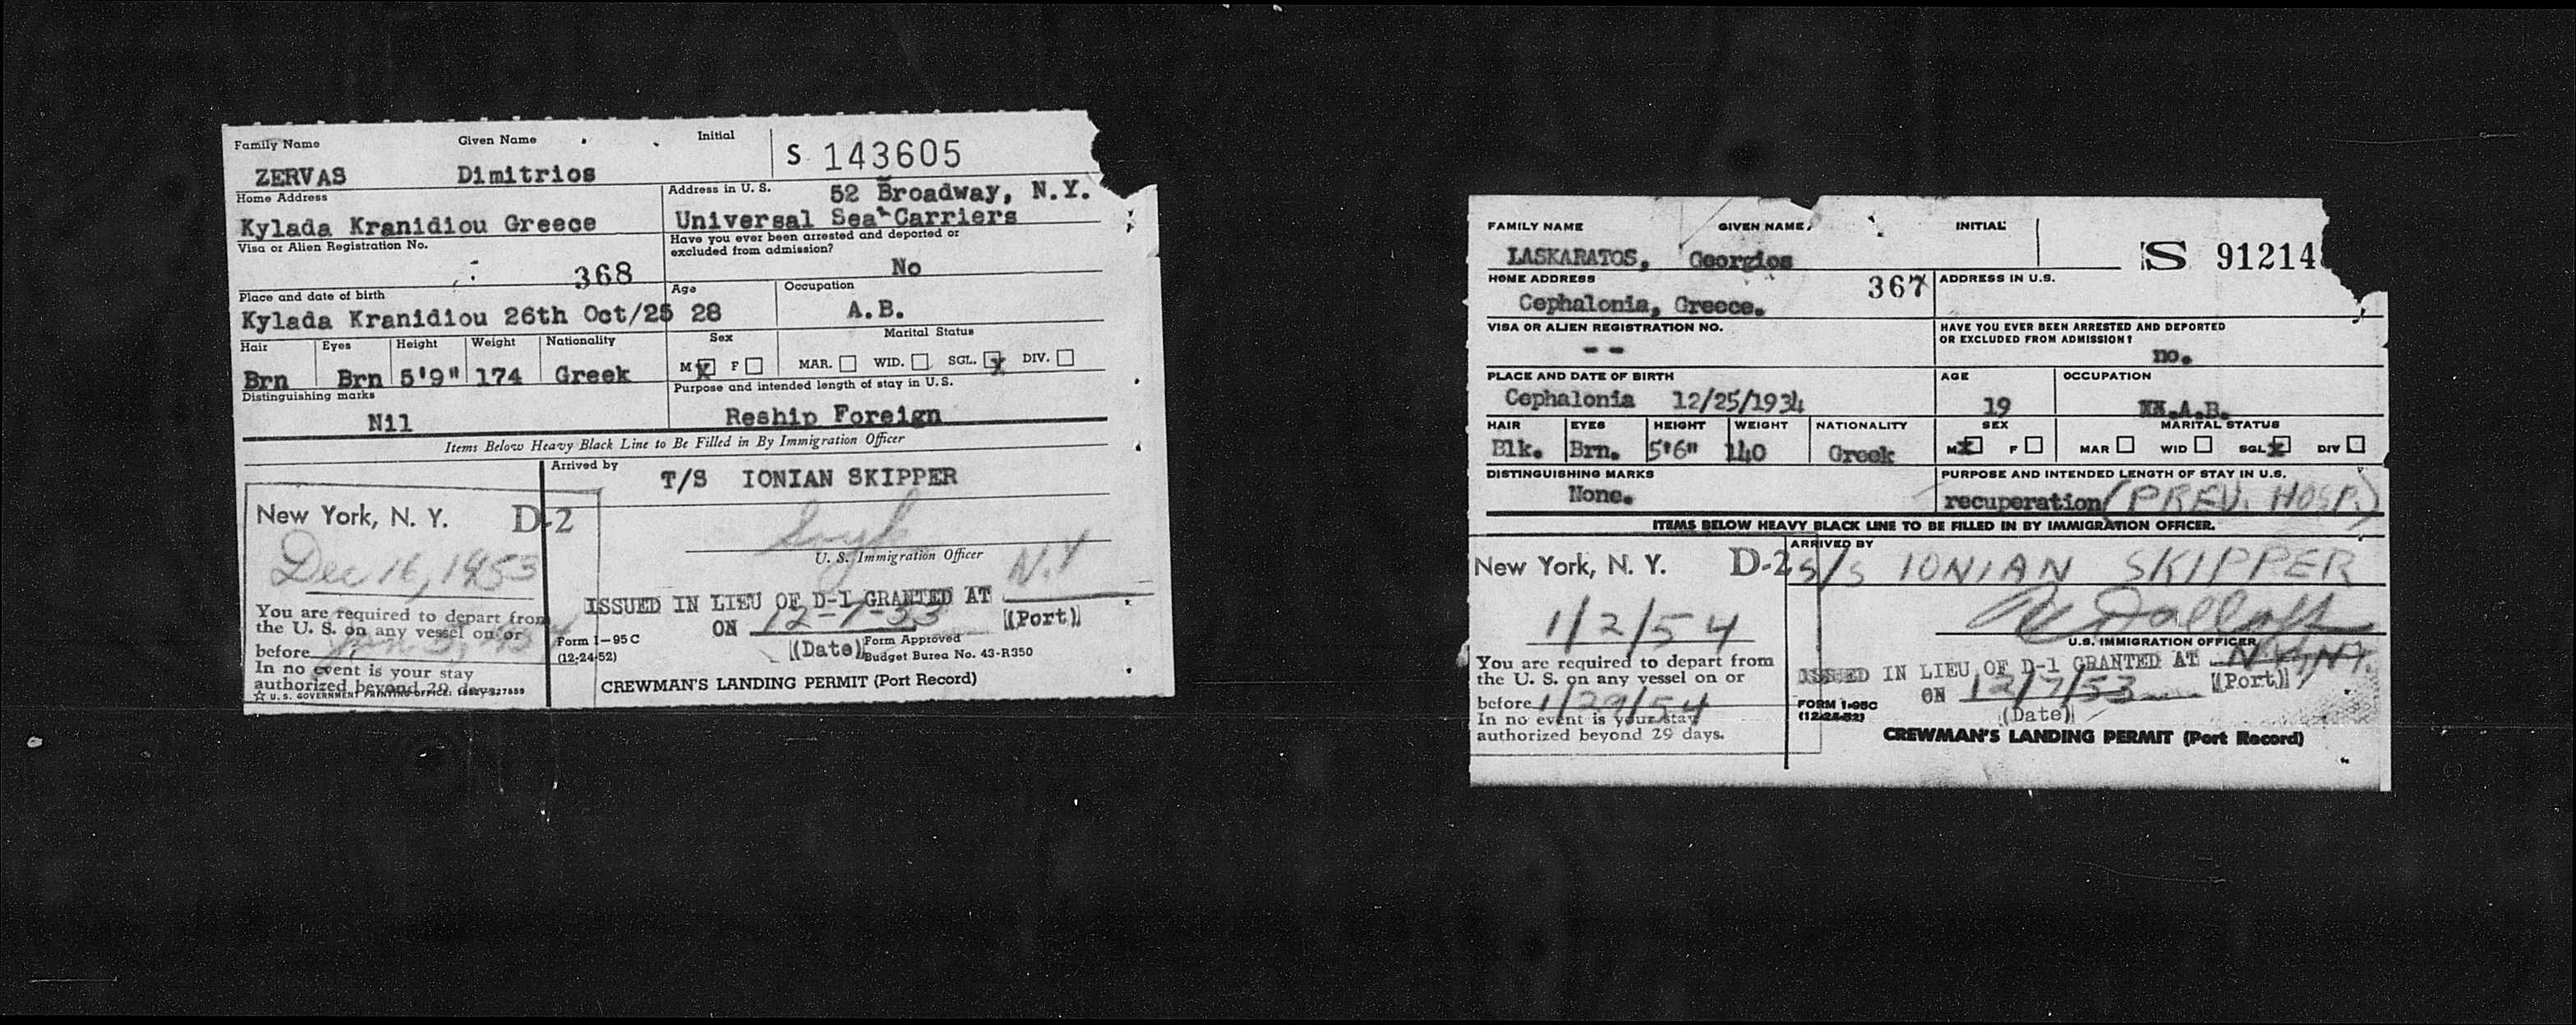 Family Name Given Name Initial
S 143605
ZERVAS Dimitrios
Home Address
Address in U. S. 52 Broadway, N.Y.
Kylada Kranidiou Greece
Universal Sea Carriers
Visa or Alien Registration No.
368
Have you ever been arrested and deported or
excluded from admission?
No
Place and date of birth
Kylada Kranidiou 26th Oct/25
Age
28
Occupation
A.B.
Hair Eyes Height Weight Nationality
Brn Brn 5'9" 174 Greek
Sex
M x F
Marital Status
MAR. WID. SGL. x DIV.
Distinguishing marks
Nil
Purpose and intended length of stay in U.S.
Reship Foreign
Items Below Heavy Black Line to Be Filled in By Immigration Officer
Arrived by
T/S IONIAN SKIPPER
New York, N. Y. D-2
Dec 16, 1953
U. S. Immigration Officer
You are required to depart from
the U. S. on any vessel on or
before
In no event is your stay
authorized beyond 29 days.
☆ U. S. GOVERNMENT PRINTING OFFICE:
ISSUED IN LIEU OF D-1 GRANTED AT N.Y
(Port)
ON 12-7-53
(Date)
Form I-95 C
(12-24-52)
Form Approved
Budget Bureau No. 43-R350
CREWMAN'S LANDING PERMIT (Port Record)
FAMILY NAME GIVEN NAME INITIAL
S 91214
LASKARATOS, Georgios
HOME ADDRESS
367
ADDRESS IN U.S.
Cephalonia, Greece.
VISA OR ALIEN REGISTRATION NO.
- -
HAVE YOU EVER BEEN ARRESTED AND DEPORTED
OR EXCLUDED FROM ADMISSION?
no.
PLACE AND DATE OF BIRTH
Cephalonia 12/25/1934
AGE
19
OCCUPATION
XX.A.B.
HAIR EYES HEIGHT WEIGHT NATIONALITY
Blk. Brn. 5'6" 140 Greek
SEX
M x F
MARITAL STATUS
MAR WID SGL x DIV
DISTINGUISHING MARKS
None.
PURPOSE AND INTENDED LENGTH OF STAY IN U.S.
recuperation (PREV. HOSP.)
ITEMS BELOW HEAVY BLACK LINE TO BE FILLED IN BY IMMIGRATION OFFICER.
ARRIVED BY
S/S IONIAN SKIPPER
New York, N. Y. D-2
1/2/54
U.S. IMMIGRATION OFFICER
You are required to depart from
the U.S. on any vessel on or
before 1/29/54
In no event is your stay
authorized beyond 29 days.
ISSUED IN LIEU OF D-1 GRANTED AT N.Y., N.Y.
(Port)
ON 12/7/53
(Date)
FORM I-95C
(12-24-52)
CREWMAN'S LANDING PERMIT (Port Record)